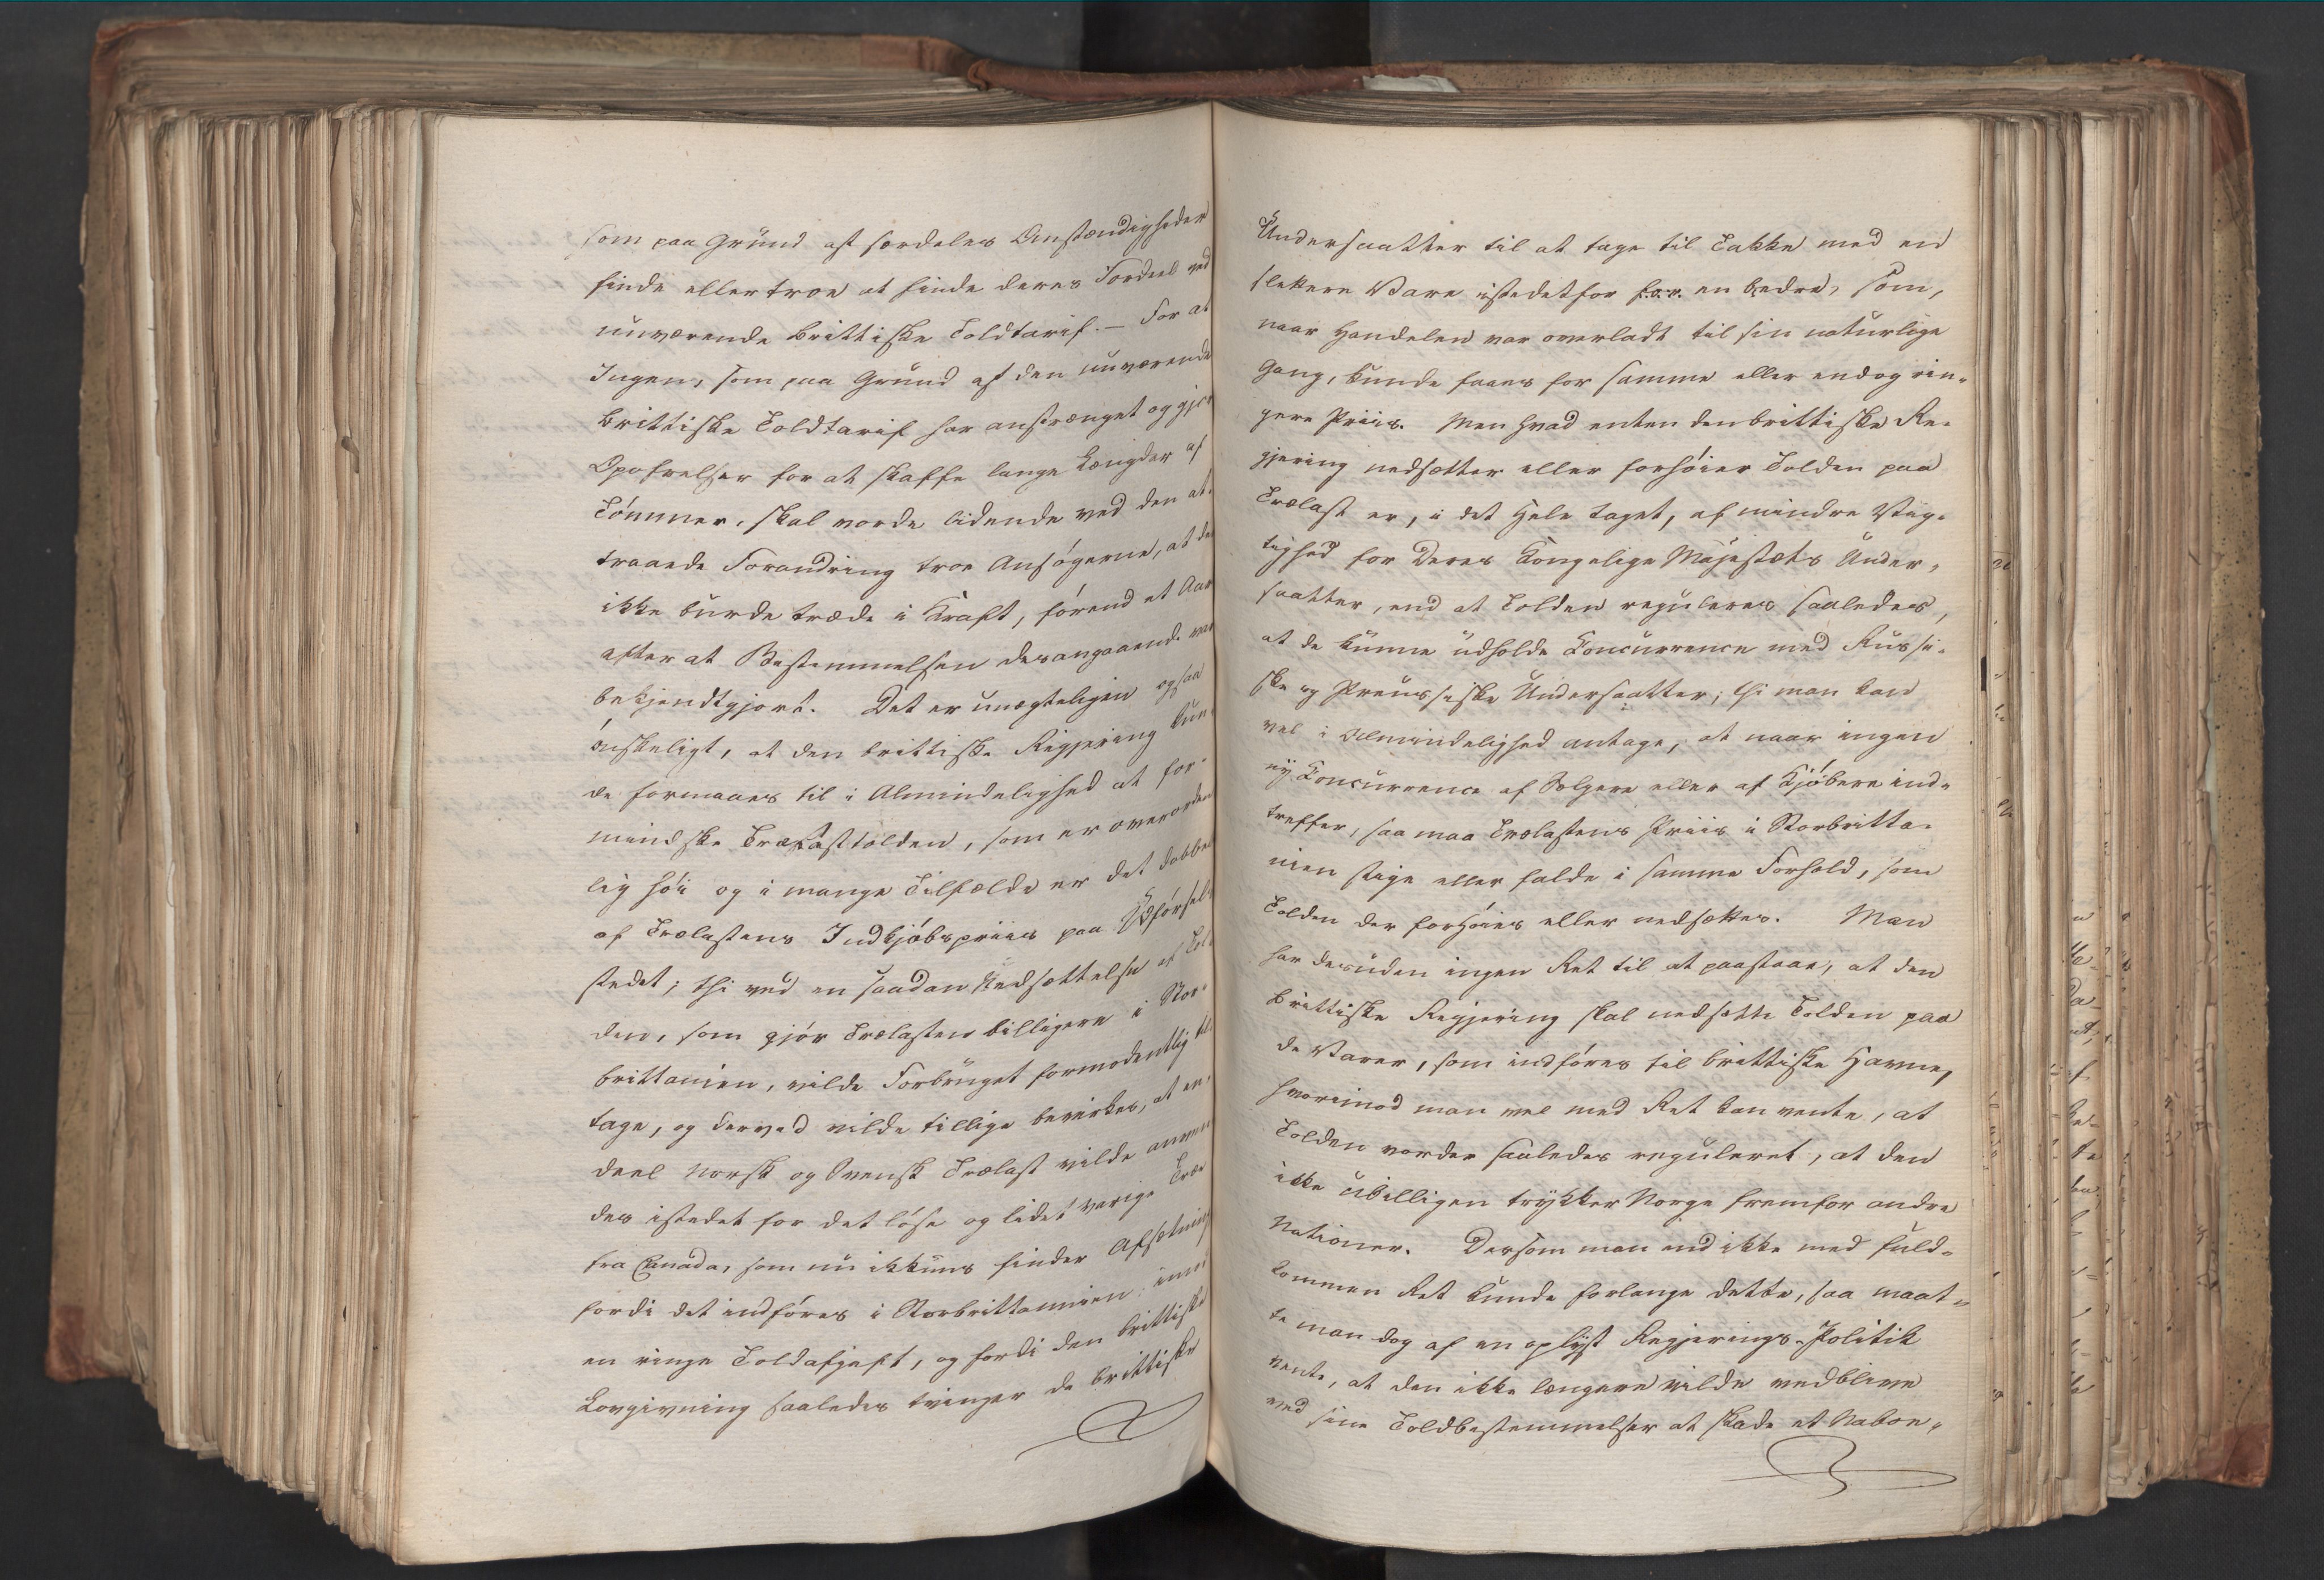 som paa Grund af fordeles Omstændigheder
finde eller troe at finde deres Fordeel ved
nuværende brittiske Toldtarif. – For at
Ingen, som paa Grund af den nuværende
brittiske Toldtarif har anstrænget og gjort
Opofrelser for at skaffe lange Længder af
Tømmer, skal vorde lidende ved den at¬
traaede Forandring troe Ansøgerne, at den
ikke burde træde i Kraft, førend et Aar
efter at Bestemmelsen desangaaende var
bekjendtgjort. Det er unægteligen ogsaa
ønskeligt, at den brittiske Regjering kun¬
de formaaes til i Almindelighed at for¬
mindske Trælasttolden, som er overorden
lig høi og i mange Tilfælde er det dobbe
af Trælastens Indkjøbspriis paa Udførsel¬
stedet; thi ved en saadan Nedsættelse af Tol
den, som gjør Trælasten billigere i Stor¬
brittanien, vilde Forbruget formodentlig til
tage, og derved vilde tillige bevirkes, at en
deel norsk og Svensk Trælast vilde anven
des istedet for det løse og lidet varige Træe
fra Canada, som nu ikkuns finder Afsætning
fordi det indføres i Storbrittannien imod
en ringe Toldafgift, og fordi den brittiske
Lovgivning saaledes tvinger de brittiske
Undersaatter til at tage til Takke med en
slettere Vare istedetfor for en bedre, som,
naar Handelen var overladt til sin naturlige
Gang, kunde faaes for samme eller endog rin¬
gere Priis. Men hvad enten den brittiske Re¬
gjering nedsætter eller forhøier Tolden paa
Trælast er, i det Hele taget, af mindre Vig¬
tighed for Deres Kongelige Majestæts Under¬
saatter, end at Tolden reguleres saaledes,
at de kunne udholde Concurrence med Russi¬
ske og Preussiske Undersaatter; thi man kan
vel i Almindelighed antage, at naar ingen
ny Concurrence af Sælgere eller af Kjøbere ind¬
treffer, saa maa Trælastens Priis i Storbritta¬
nien stige eller falde i samme Forhold, som
Tolden der forhøies eller nedsættes. Man
har desuden ingen Ret til at paastaae, at den
brittiske Regjering skal nedsætte Tolden paa
de Varer, som indføres til brittiske Havne,
hvorimod man vel med Ret kan vente, at
Tolden vorder saaledes reguleret, at den
ikke ubilligen trykker Norge fremfor andre
Nationer. Dersom man end ikke med fuld¬
kommen Ret kunde forlange dette, saa maat¬
te man dog af en oplyst Regjerings-Politik
vente, at den ikke længere vilde vedblive
ved sine Toldbestemmelser at skade et Naboe¬